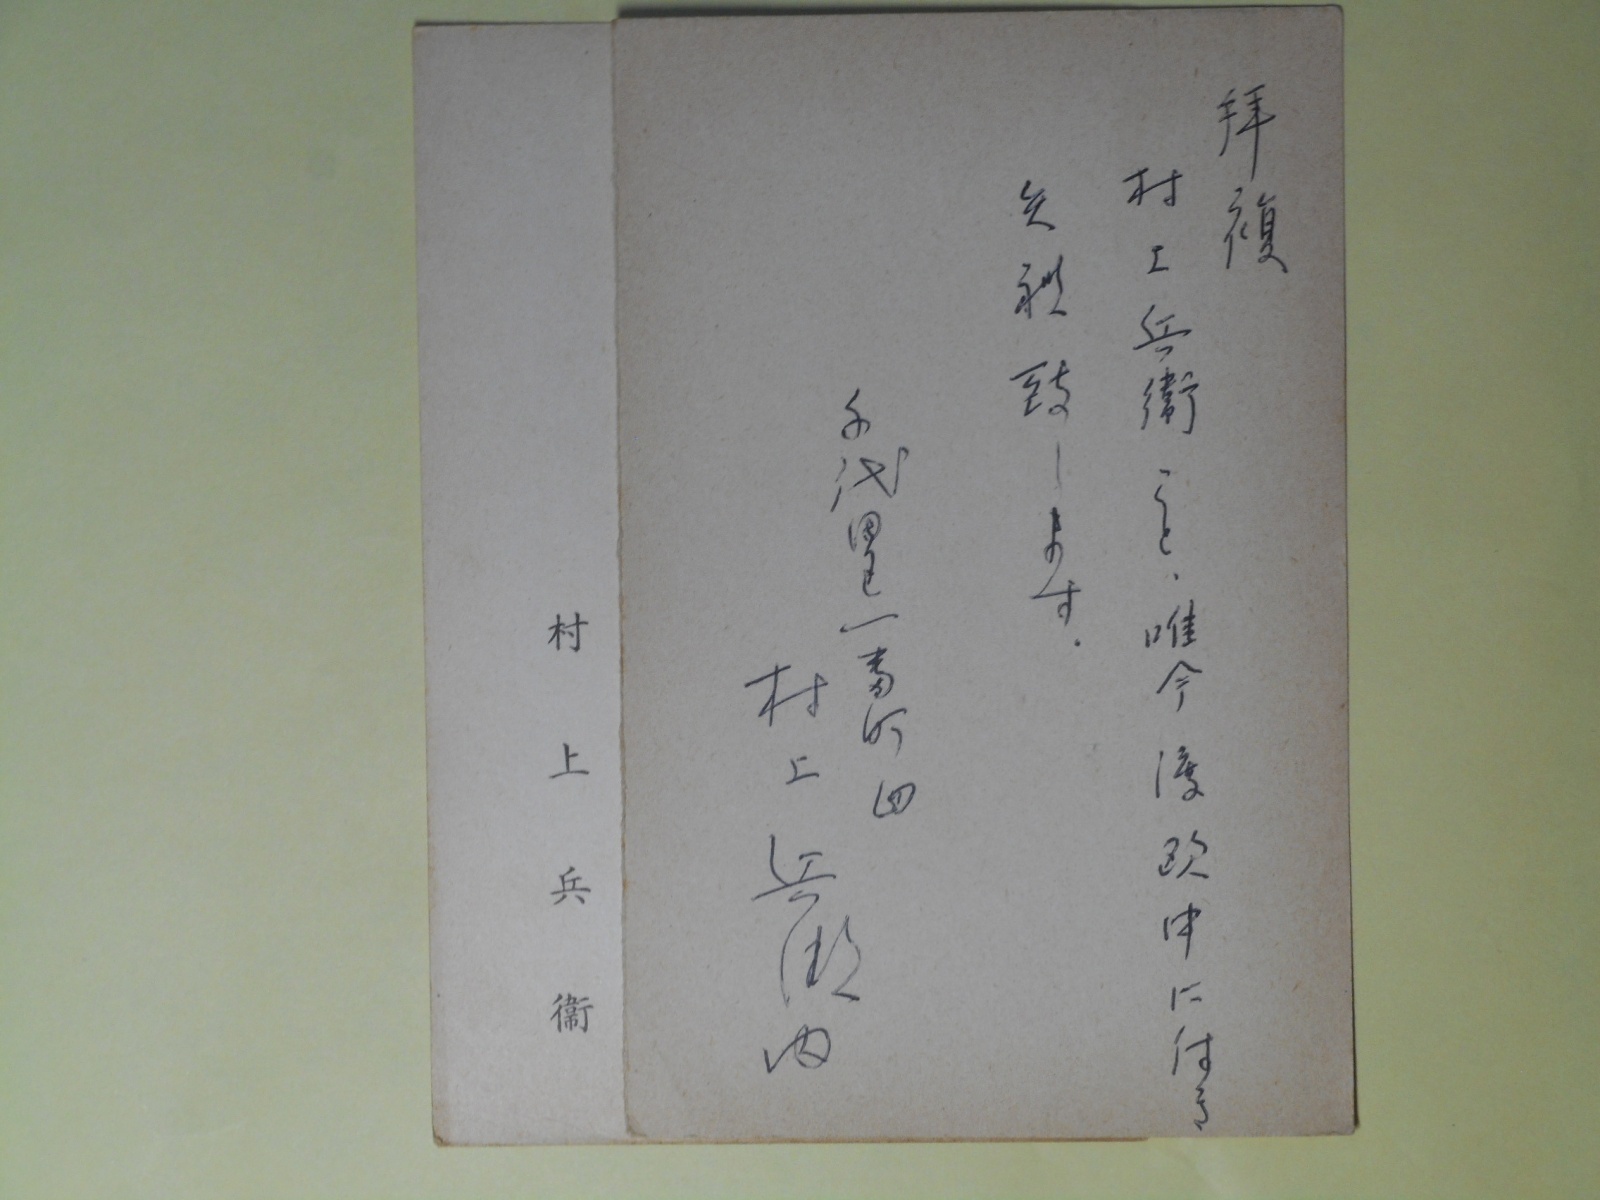 拝復
村上兵衛こと、唯今渡欧中に付き
失礼致します。
千代田区一番町四
村上兵衛内
村上兵衞